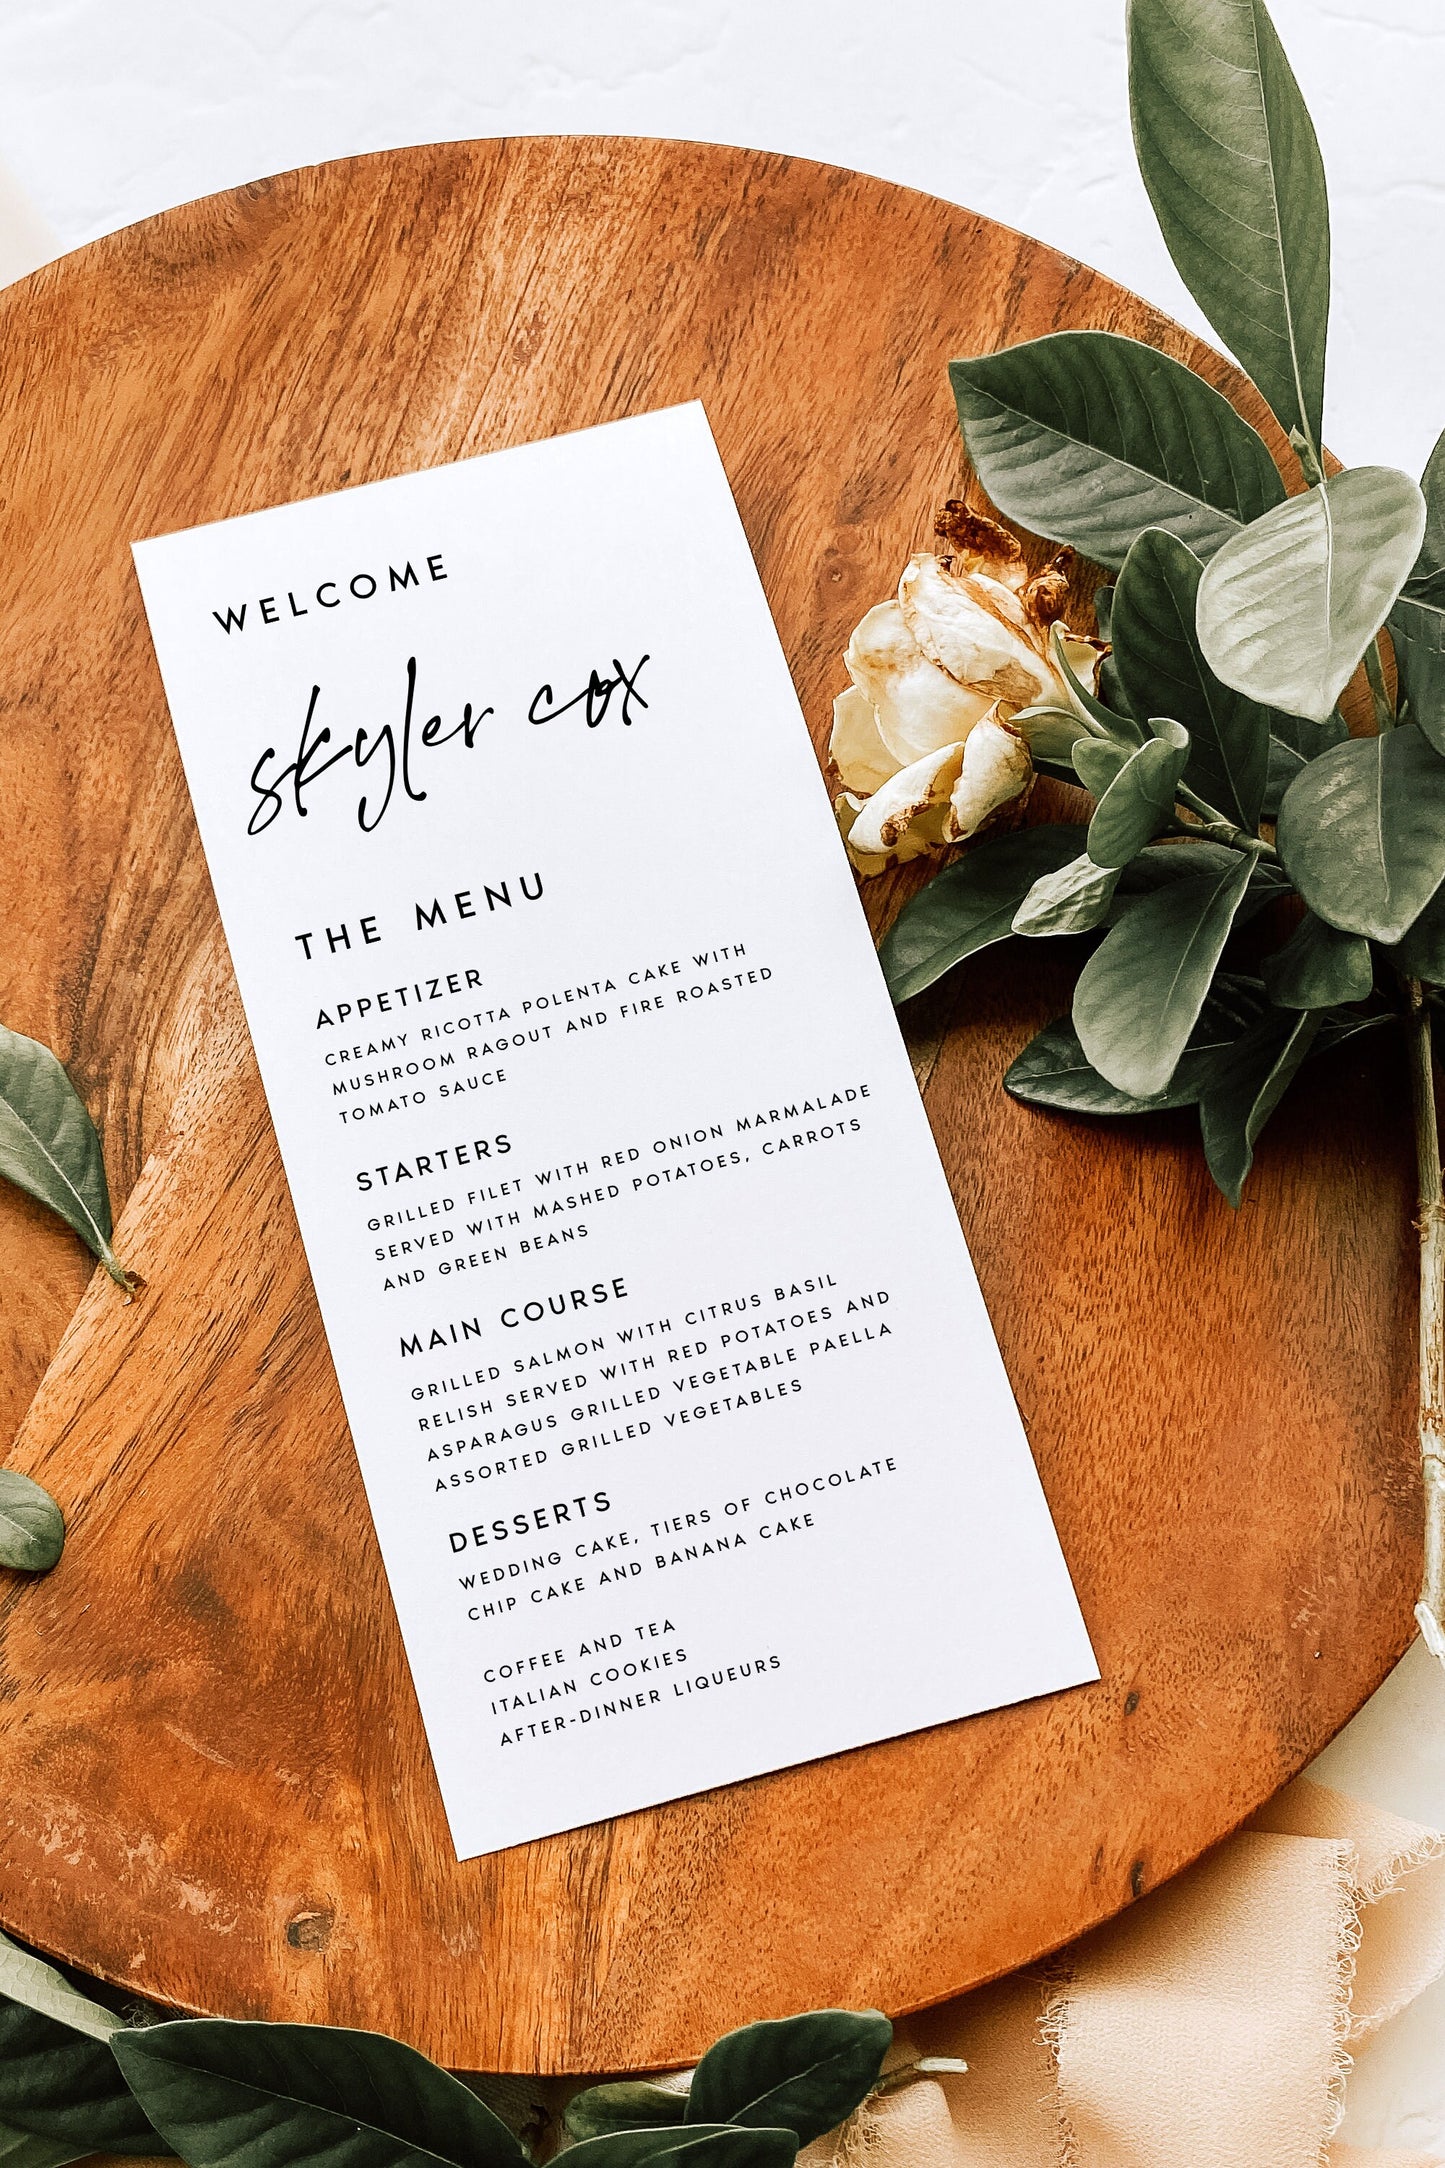 WELCOME
skyler cox
THE MENU
APPETIZER
CREAMY RICOTTA POLENTA CAKE WITH
MUSHROOM RAGOUT AND FIRE ROASTED
TOMATO SAUCE
STARTERS
GRILLED FILET WITH RED ONION MARMALADE
SERVED WITH MASHED POTATOES, CARROTS
AND GREEN BEANS
MAIN COURSE
GRILLED SALMON WITH CITRUS BASIL
RELISH SERVED WITH RED POTATOES AND
ASPARAGUS GRILLED VEGETABLE PAELLA
ASSORTED GRILLED VEGETABLES
DESSERTS
WEDDING CAKE, TIERS OF CHOCOLATE
CHIP CAKE AND BANANA CAKE
COFFEE AND TEA
ITALIAN COOKIES
AFTER-DINNER LIQUEURS